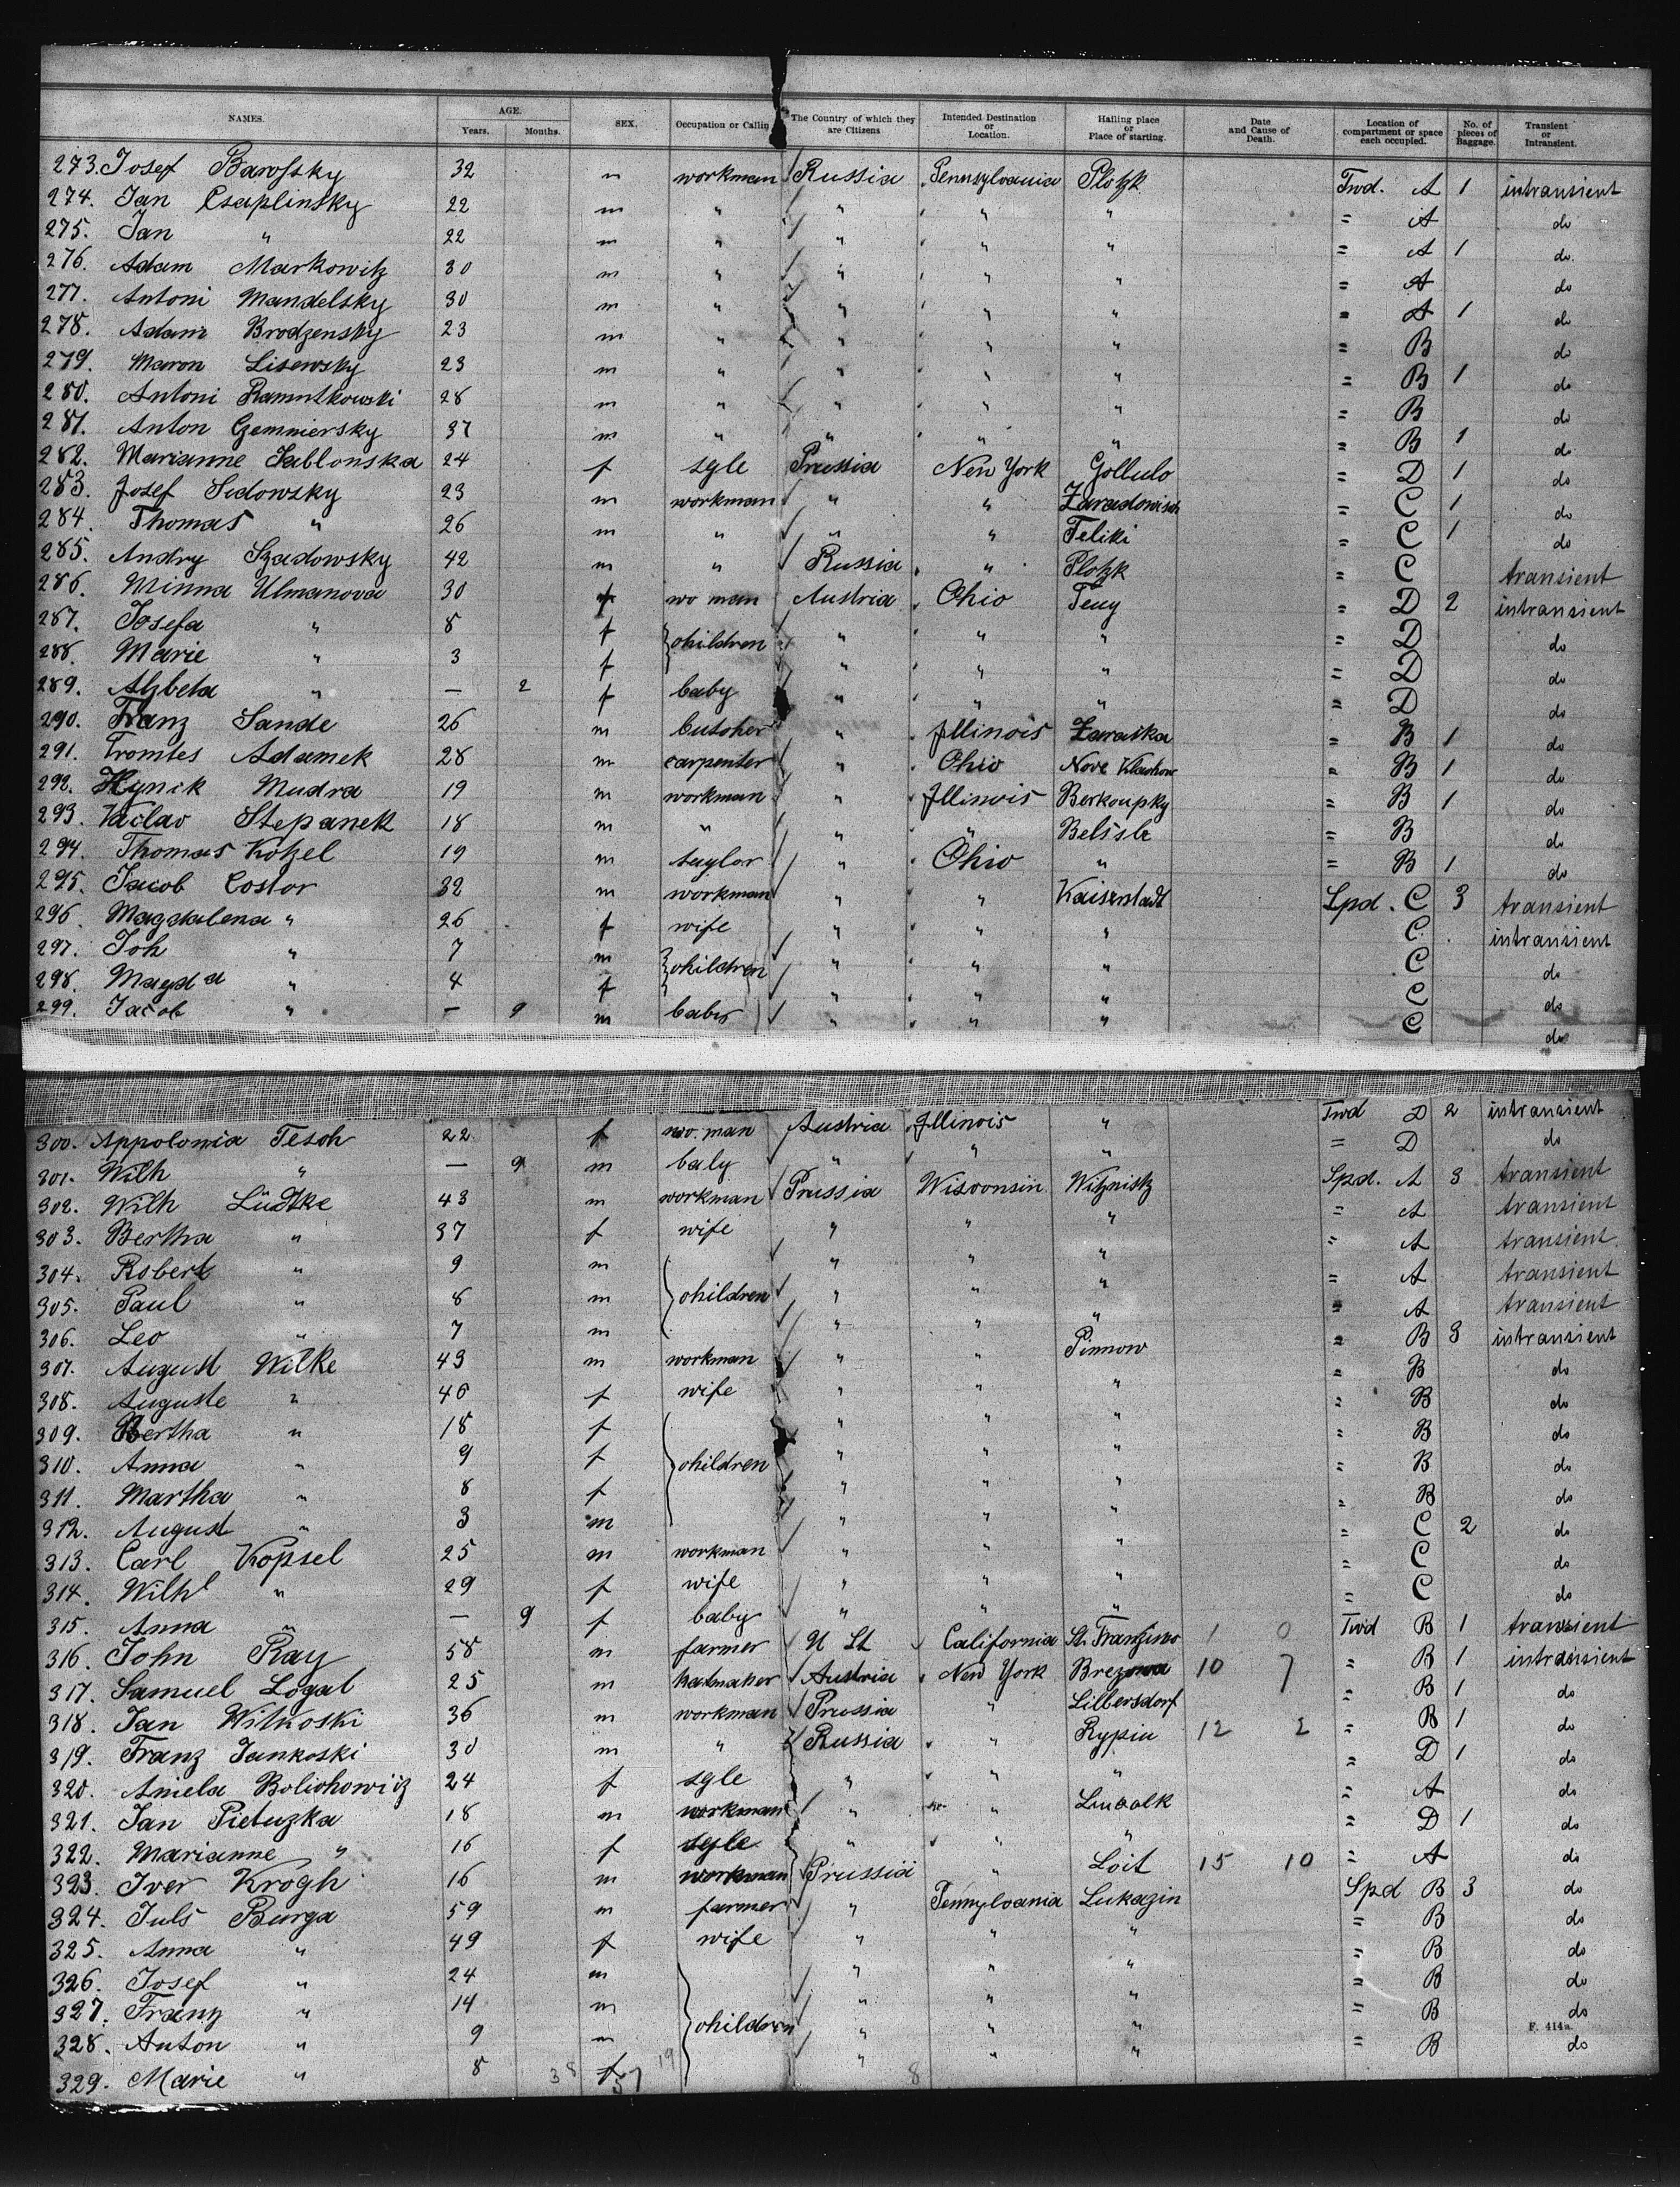 NAMES. AGE. Years. Months. SEX. Occupation or Calling The Country of which they are Citizens Intended Destination or Location. Hailing place or Place of starting. Date and Cause of Death. Location of compartment or space each occupied. No. of pieces of Baggage. Transient or Intransient.
273. Josef Barofsky 32 m workman Russia Pennsylvania Plotzk Twd. A 1 intransient
274. Jan Csaplinsky 22 m " " " " = A do
275. Jan " 22 m " " " " = A 1 do
276. Adam Markowitz 30 m " " " " = A do
277. Antoni Mandelsky 30 m " " " " = A 1 do
278. Adam Brodzensky 23 m " " " " = B do
279. Maron Lisewsky 23 m " " " " = B 1 do
280. Antoni Ramutkowski 28 m " " " " = B do
281. Anton Gemniersky 37 m " " " " = B 1 do
282. Marianne Jablonska 24 f sgle Prussia New York Gollub = D 1 do
283. Josef Sudowsky 23 m workman " " = C 1 do
284. Thomas " 26 m " " " Feliki = C 1 do
285. Andry Szadowsky 42 m " Russia " Plotzk = C transient
286. Minna Ulmanova 30 f wo man Austria Ohio = D 2 intransient
287. Josefa " 8 f children " " " = D do
288. Marie " 3 f " " " = D do
289. Alzbeta " — 2 f baby " " " = D do
290. Franz Sande 26 m butcher " Illinois Zaraska = B 1 do
291. Adamek 28 m carpenter " Ohio Nove = B 1 do
292. Hynik Mudra 19 m workman " Illinois Berkoupky = B 1 do
293. Vaclav Stepanek 18 m " " " = B do
294. Thomas Kotzel 19 m taylor " Ohio " = B 1 do
295. Jacob Costor 32 m workman " " Kaiserstadt Spd. C 3 transient
296. Magdalena " 26 f wife " " " C intransient
297. Joh " 7 m children " " " C do
298. Magda " 4 f " " " C do
299. Jacob " — 9 m baby " " " C do
300. Appolonia Tesch 22 f wo. man Austria Illinois " Twd D 2 intransient
301. Wilh " — 9 m baby " " " = D do
302. Wilh Lüdtke 43 m workman Prussia Wisconsin Witznitz Spd. A 3 transient
303. Bertha " 37 f wife " " " = A transient
304. Robert " 9 m children " " " = A transient
305. Paul " 8 m " " " = A transient
306. Leo " 7 m " " " = A transient
307. August Wilke 43 m workman " " Pinnow = B 3 intransient
308. Auguste " 46 f wife " " " = B do
309. Bertha " 18 f children " " " = B do
310. Anna " 9 f " " " = B do
311. Martha " 8 f " " " = B do
312. August " 3 m " " " = B do
313. Carl Kopsel 25 m workman " " " = C 2 do
314. Wilhl " 29 f wife " " " = C do
315. Anna " — 9 f baby " " " = C do
316. John Ray 58 m farmer U St California 1 0 Twd B 1 transient
317. Samuel Logal 25 m hatmaker Austria New York Brezowa 10 7 = B 1 intransient
318. Jan Witkoski 36 m workman Prussia " Lilbersdorf = B 1 do
319. Franz Jankoski 30 m " Russia " Rypin 12 2 = B 1 do
320. Aniela Bolichowitz 24 f sgle " " " = D 1 do
321. Jan Pietuzka 18 m workman " " = A do
322. Marianne " 16 f sgle " " " = D 1 do
323. Iver Krogh 16 m workman Prussia " Loit 15 10 = A do
324. Juls Burga 59 m farmer " Pennylvania Lukazin Spd B 3 do
325. Anna " 49 f wife " " " = B do
326. Josef " 24 m children " " " = B do
327. Franz " 14 m " " " = B do
328. Anton " 9 m " " " = B do
329. Marie " 8 f " " " = B do
F. 414a.
38 57 19 8